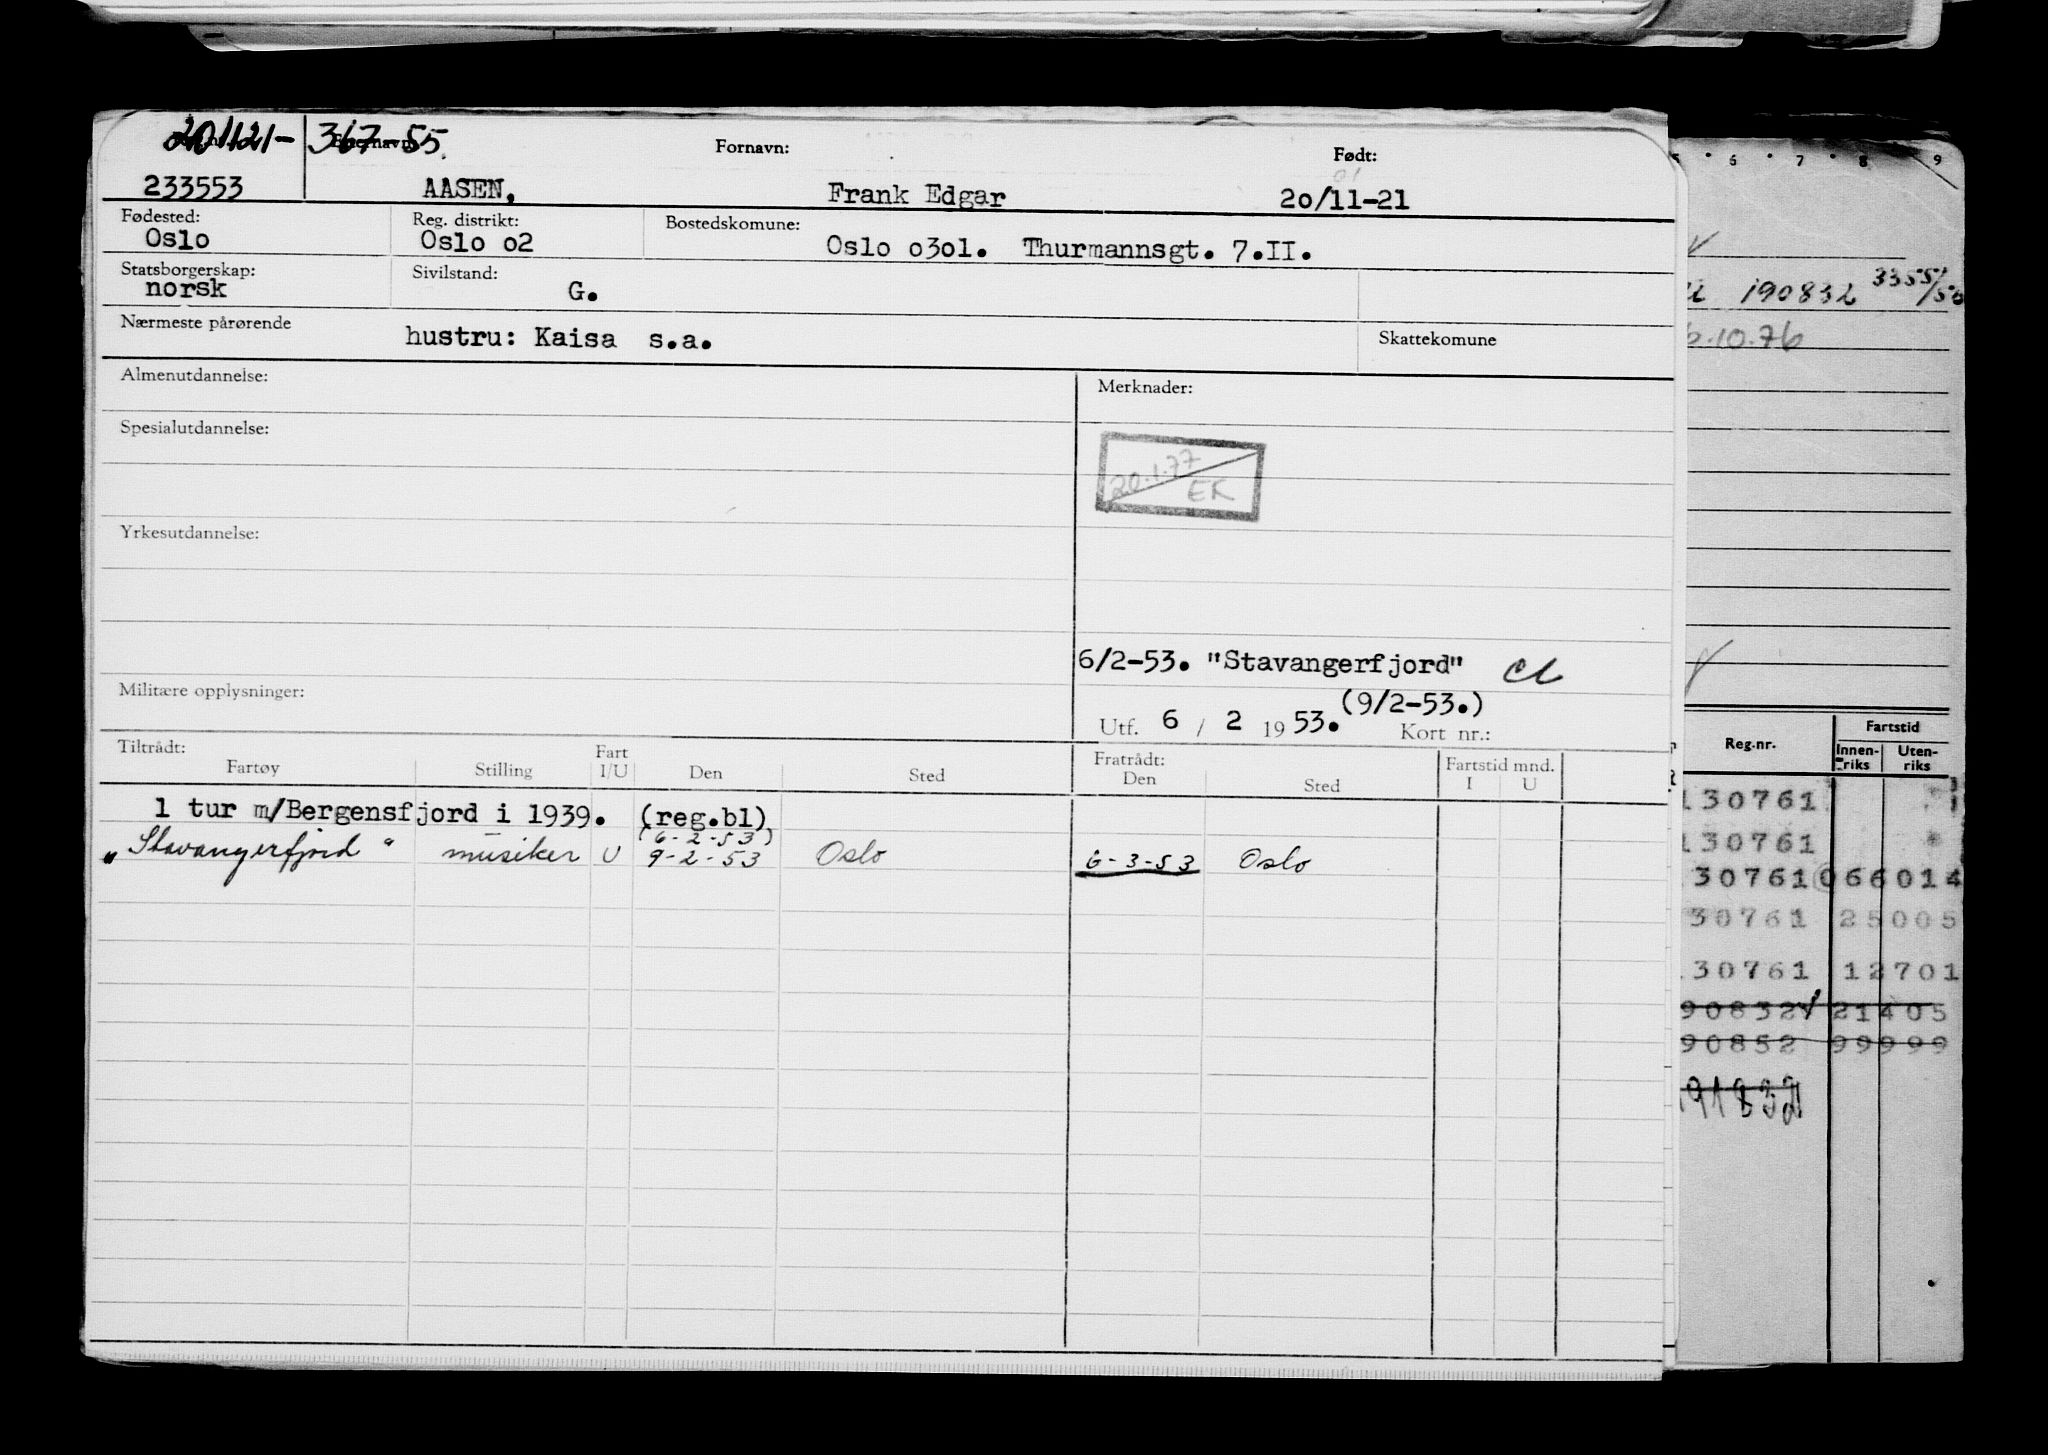 201121- 367-55.
Fornavn: Født:
233553 AASEN, Frank Edgar 2o/11-21
Fødested: Reg. distrikt: Bostedskomune:
Oslo Oslo o2 Oslo o3o1. Thurmannsgt. 7.II.
Statsborgerskap: Sivilstand:
norsk G.
Nærmeste pårørende hustru: Kaisa s.a. Skattekomune
Almenutdannelse: Merknader:
Spesialutdannelse:
20.1.77
EK
Yrkesutdannelse:
6/2-53. "Stavangerfjord"
Militære opplysninger: (9/2-53.)
Utf. 6 / 2 1953. Kort nr.:
Tiltrådt: Fratrådt:
Fartøy Stilling Fart I/U Den Sted Den Sted Fartstid mnd. I U
1 tur m/Bergensfjord i 1939. (reg.bl)
(6-2-53)
"Stavangerfjord" musiker U 9-2-53 Oslo 6-3-53 Oslo
6 7 8 9
190832 3355/
.10.76
Reg.nr. Fartstid
Innen-riks Uten-riks
130761
130761
30761 066014
30761 25005
30761 12701
90832 21405
90852 99999